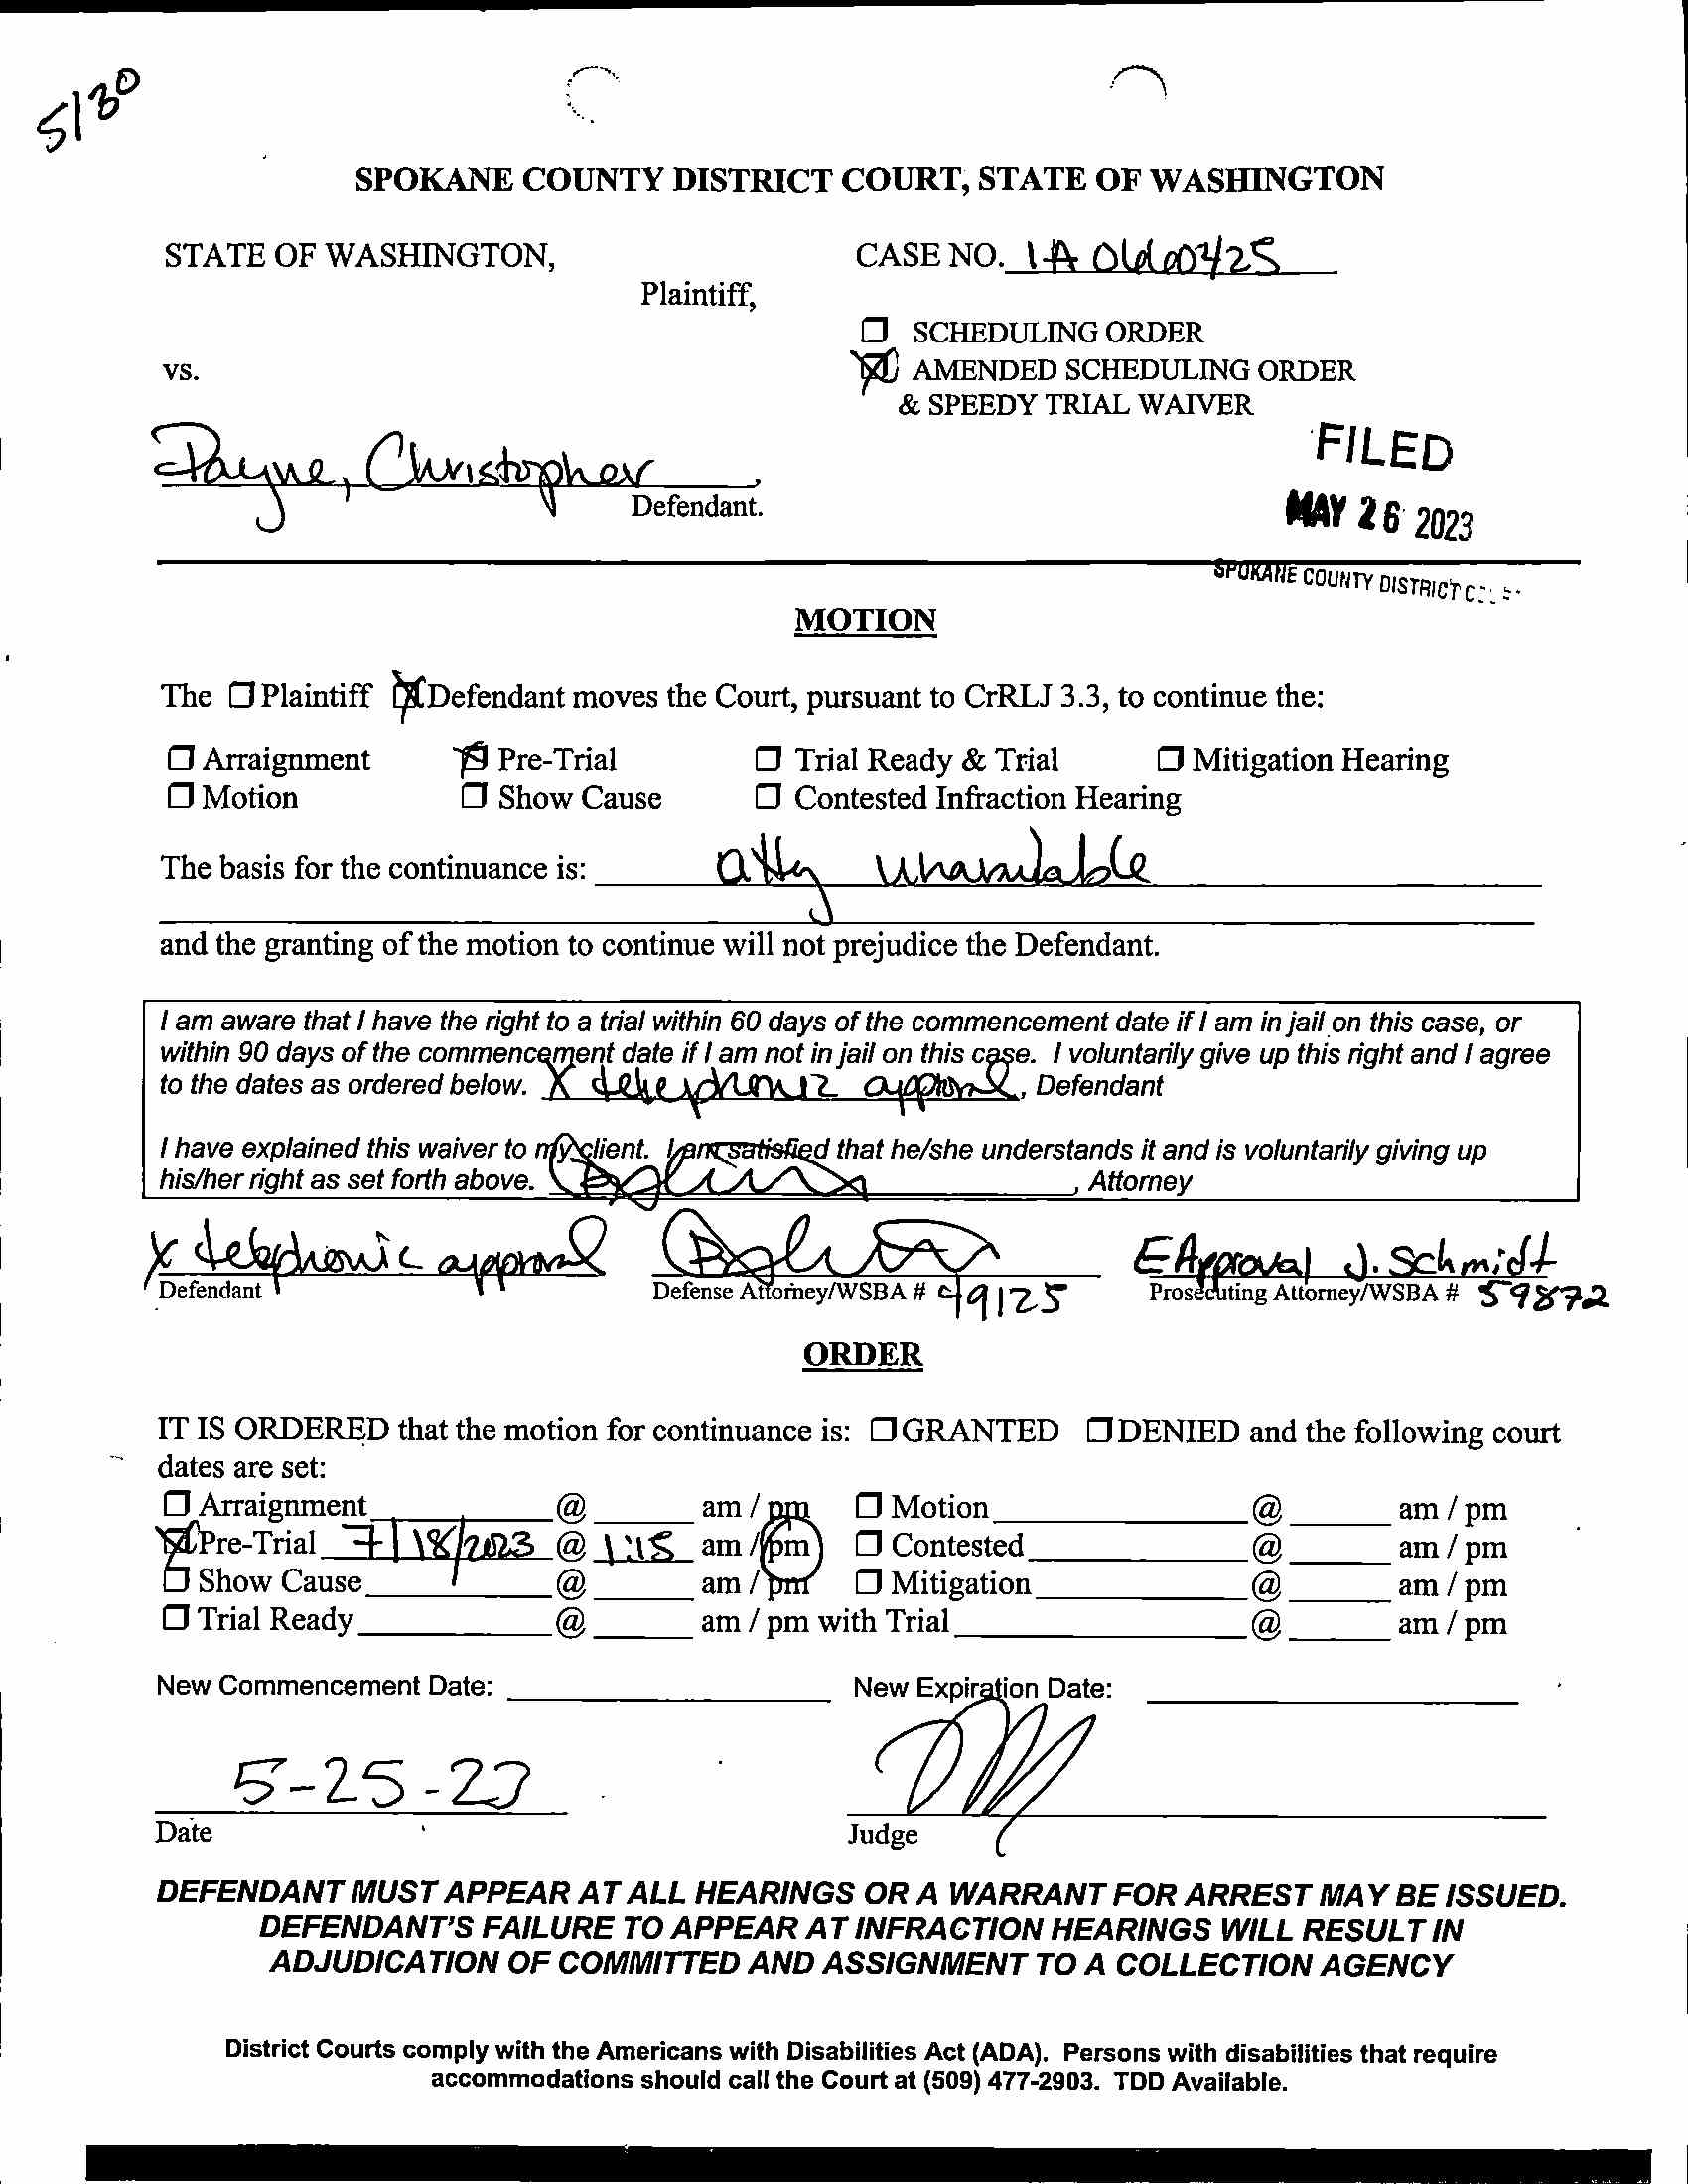 5/30
SPOKANE COUNTY DISTRICT COURT, STATE OF WASHINGTON
STATE OF WASHINGTON,
Plaintiff,
CASE NO. 1A
☐ SCHEDULING ORDER
vs.
☒ AMENDED SCHEDULING ORDER
& SPEEDY TRIAL WAIVER
Payne, Christopher
Defendant.
FILED
MAY 26 2023
SPOKANE COUNTY DISTRICT
MOTION
The ☐ Plaintiff ☒ Defendant moves the Court, pursuant to CrRLJ 3.3, to continue the:
☐ Arraignment ☒ Pre-Trial ☐ Trial Ready & Trial ☐ Mitigation Hearing
☐ Motion ☐ Show Cause ☐ Contested Infraction Hearing
The basis for the continuance is: atty unavailable
and the granting of the motion to continue will not prejudice the Defendant.
I am aware that I have the right to a trial within 60 days of the commencement date if I am in jail on this case, or
within 90 days of the commencement date if I am not in jail on this case. I voluntarily give up this right and I agree
to the dates as ordered below. X telephonic approval, Defendant
I have explained this waiver to my client. I am satisfied that he/she understands it and is voluntarily giving up
his/her right as set forth above. , Attorney
X telephonic approval
Defendant
Defense Attorney/WSBA # 49125
E Approval J. Schmidt
Prosecuting Attorney/WSBA # 59872
ORDER
IT IS ORDERED that the motion for continuance is: ☐ GRANTED ☐ DENIED and the following court
dates are set:
☐ Arraignment @ am / pm ☐ Motion @ am / pm
☒ Pre-Trial 7/18/2023 @ 1:15 am / pm ☐ Contested @ am / pm
☐ Show Cause @ am / pm ☐ Mitigation @ am / pm
☐ Trial Ready @ am / pm with Trial @ am / pm
New Commencement Date: New Expiration Date:
5-25-23
Date
Judge
DEFENDANT MUST APPEAR AT ALL HEARINGS OR A WARRANT FOR ARREST MAY BE ISSUED.
DEFENDANT'S FAILURE TO APPEAR AT INFRACTION HEARINGS WILL RESULT IN
ADJUDICATION OF COMMITTED AND ASSIGNMENT TO A COLLECTION AGENCY
District Courts comply with the Americans with Disabilities Act (ADA). Persons with disabilities that require
accommodations should call the Court at (509) 477-2903. TDD Available.